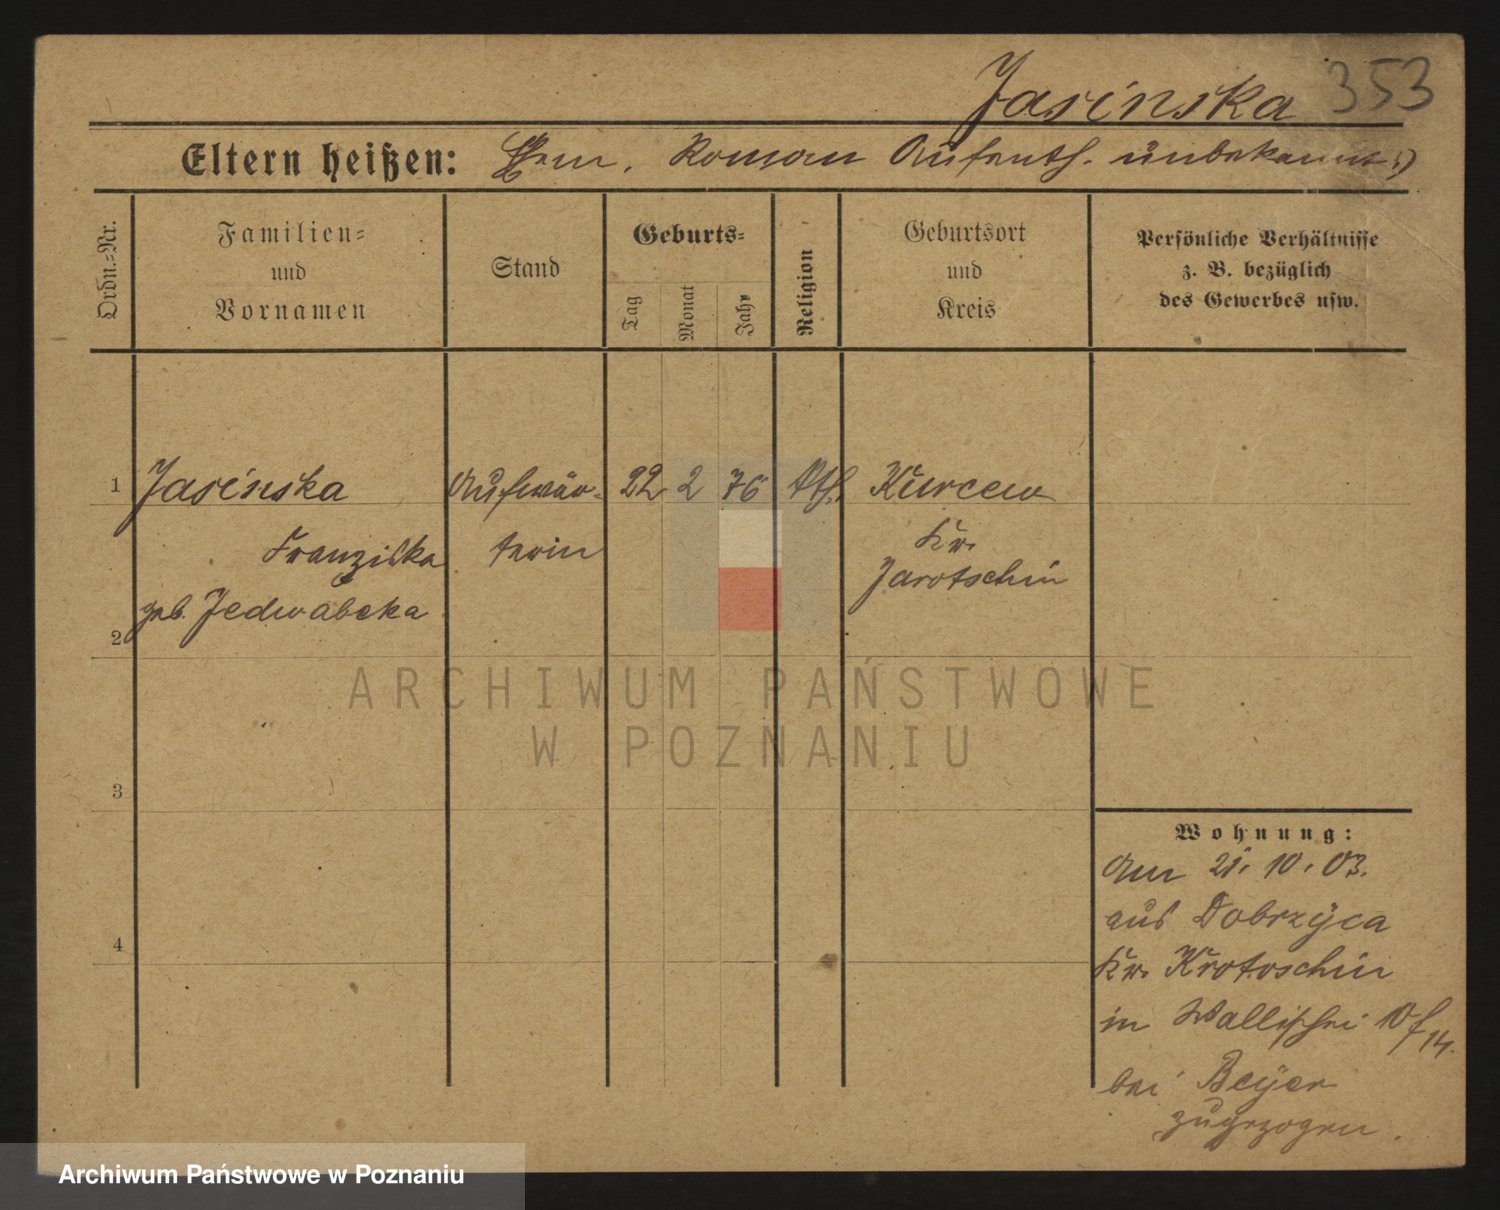 Jasinska 353
Eltern heißen: Roman Aufenth. unbekannt
Ordn.-Nr.
Familien-
und
Vornamen
Stand
Geburts-
Tag
Monat
Jahr
Religion
Geburtsort
und
Kreis
Persönliche Verhältnisse
z. B. bezüglich
des Gewerbes usw.
1 Jasinska Aufwär- 22 2 76 Kth. Kurcew
Franziska terin Kr.
Jarotschin
geb. Jedwabska
2
ARCHIWUM PAŃSTWOWE
W POZNANIU
3
Wohnung:
Am 21. 10. 03.
aus Dobrzyca
4
Kr. Krotoschin
in Wallischei
bei Beyer
zugezogen.
Archiwum Państwowe w Poznaniu